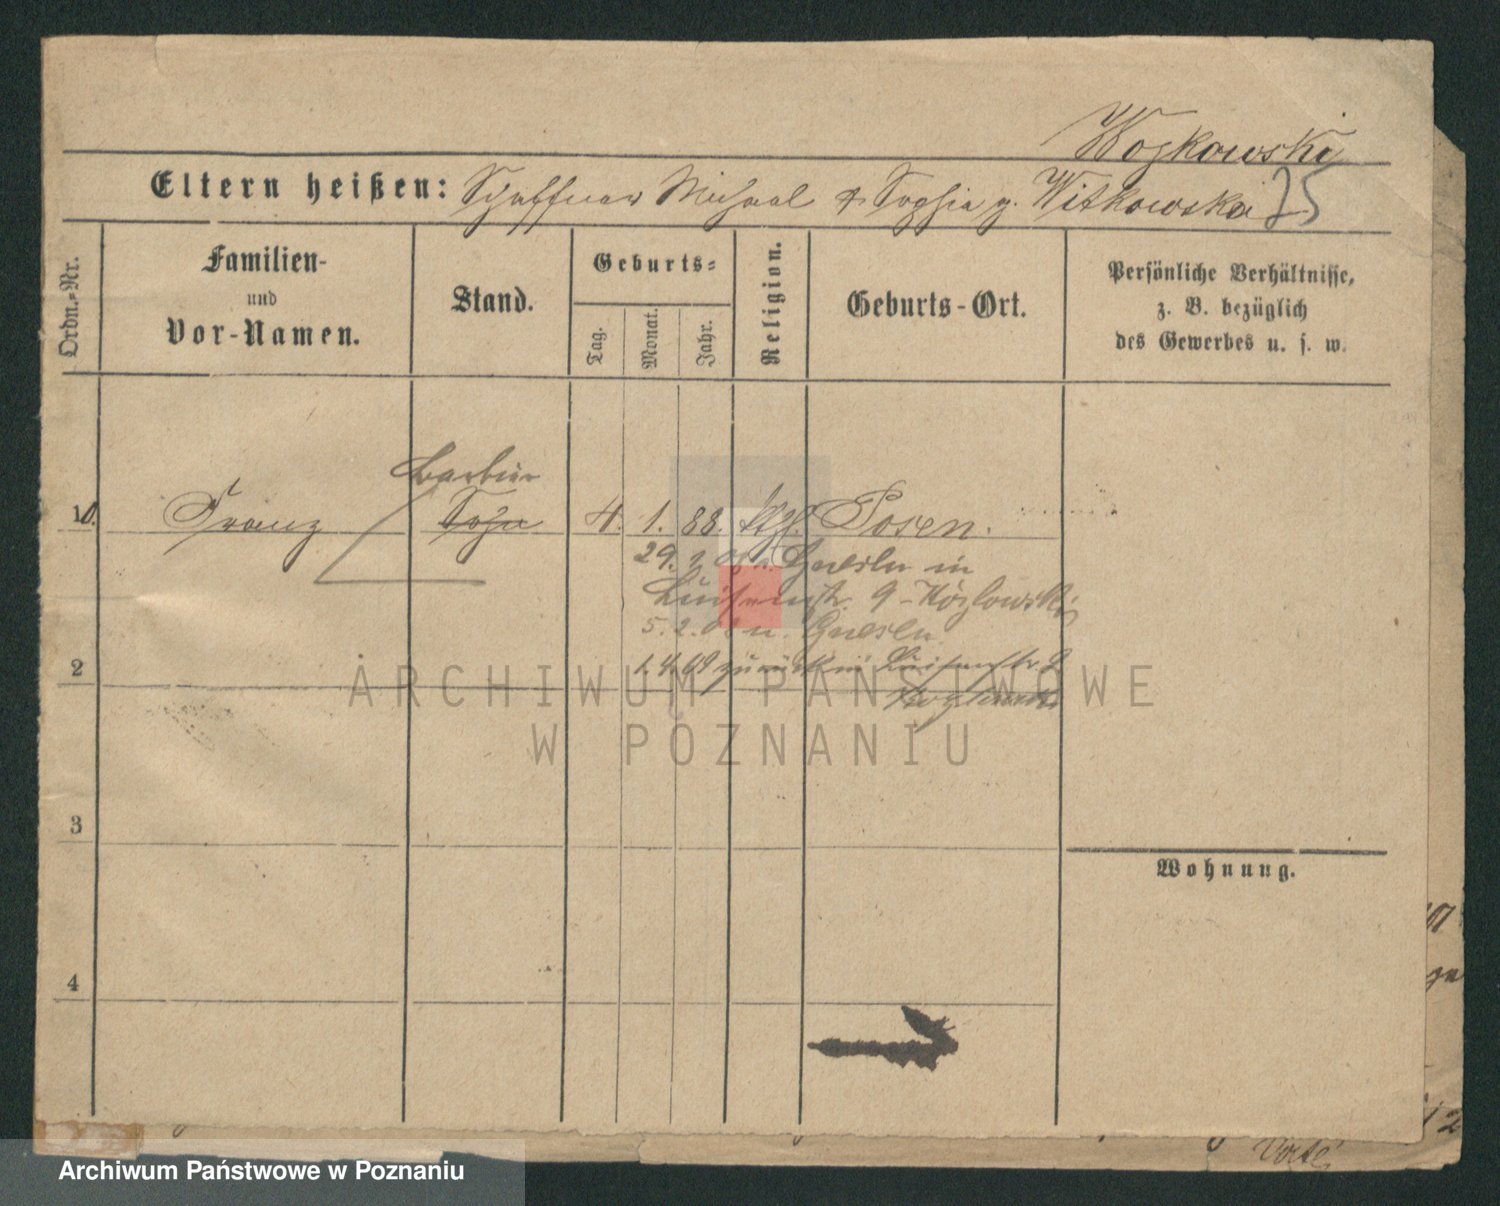 Woykowski
Eltern heißen: Schaffner Michael & Sophia g. Witkowska
25
Ordn.-Nr.
Familien-
und
Vor-Namen.
Stand.
Geburts-
Tag.
Monat.
Jahr.
Religion.
Geburts-Ort.
Persönliche Verhältnisse,
z. B. bezüglich
des Gewerbes u. s. w.
Barbier
10. Franz Sohn 4. 1. 88. kth. Posen.
29. 08 n. Gnesen in
Luisenstr. 9 - Kozlowski
5. 2. 08 n. Gnesen
2
1. 4. 09 zurück in Luisenstr
3
Wohnung.
4
ARCHIWUM PAŃSTWOWE
W POZNANIU
Archiwum Państwowe w Poznaniu